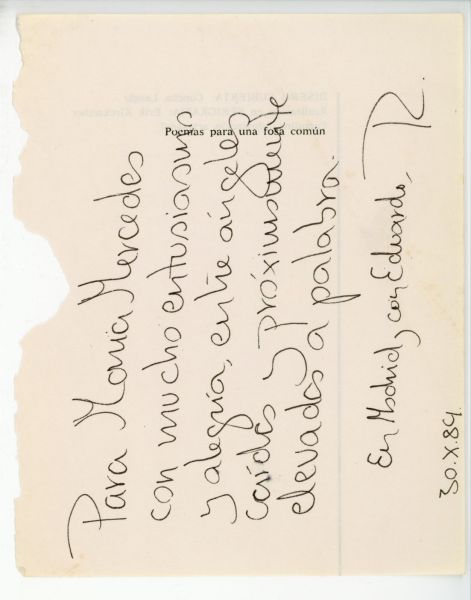 Poemas para una fosa común
Para María Mercedes
con mucho entusiasmo
y alegría, entre ángeles
caídos y próximamente
elevados a palabra.
En Madrid, con Eduardo,
30.X.84